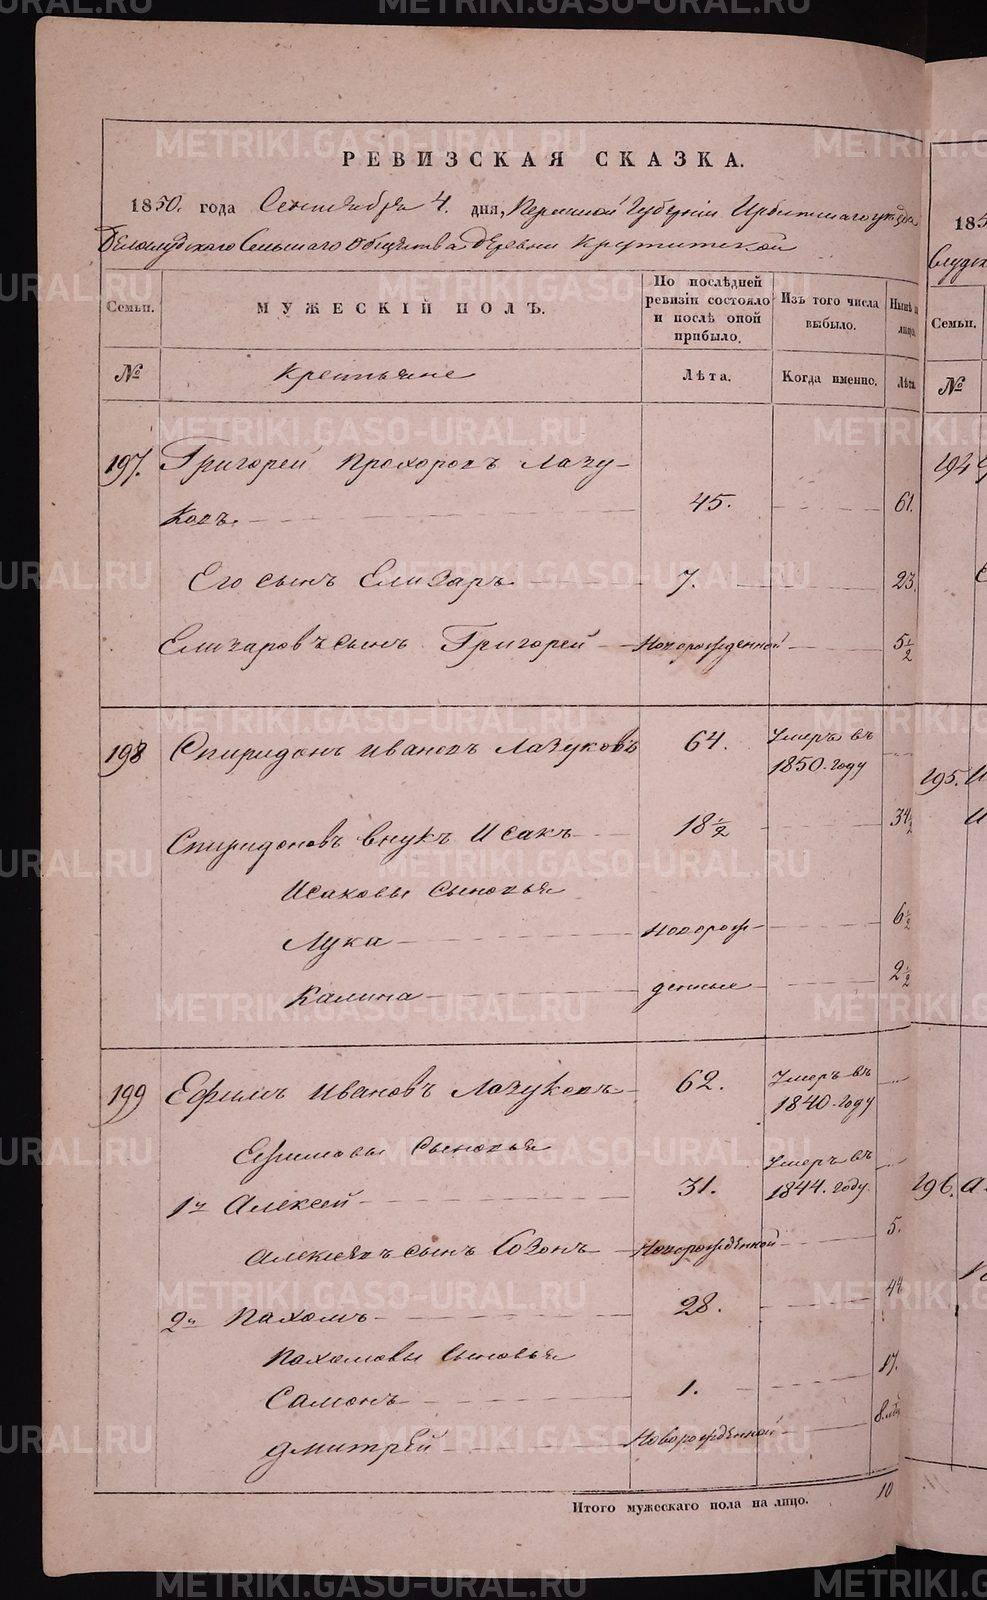 РЕВИЗСКАЯ СКАЗКА.
1850. года Сентября 4. дня, Пермской Губернии Ирбитскаго уѣзда
Белослудскаго Сельскаго Общества деревни Крутитской
Семьи.
МУЖЕСКІЙ ПОЛЪ.
По послѣдней ревизіи состояло и послѣ оной прибыло.
Изъ того числа выбыло.
Нынѣ на лицо.
№
Крестьяне
Лѣта.
Когда именно.
Лѣта
197. Григорей Прохоровъ Лазу-
ковъ. 45. 61.
Его сынъ Елизаръ 7. 23.
Елизаровъ сынъ Григорей Новорожденной 5½
198 Спиридонъ Ивановъ Лазуковъ 64. Умеръ въ
1850. году
Спиридоновъ внукъ Исакъ 18½ 34½
Исаковы сыновья
Лука новорож- 6½
Калина денные 2½
199 Ефимъ Ивановъ Лазуковъ 62. Умеръ въ
1840. году
Ефимовы сыновья
1й Алексей 31. Умеръ въ
1844. году.
Алексеевъ сынъ Созонъ Новорожденной 5.
2й Пахомъ 28. 44.
Пахомовы сыновья
Самонъ 1. 17.
Дмитрей Новорожденной 8. м
Итого мужескаго пола на лицо. 10
185
Слудс
Семьи.
№
194
195. И
И
196. А
METRIKI.GASO-URAL.RU